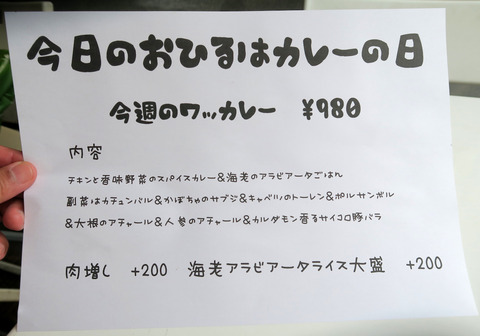 今日のおひるはカレーの日
今週のワッカレー ¥980
内容
チキンと香味野菜のスパイスカレー&海老のアラビアータごはん
副菜はカチュンバル&かぼちゃのサブジ&キャベツのトーレン&ポルサンボル
&大根のアチャール&人参のアチャール&カルダモン香るサイコロ豚バラ
肉増し +200 海老アラビアータライス大盛 +200